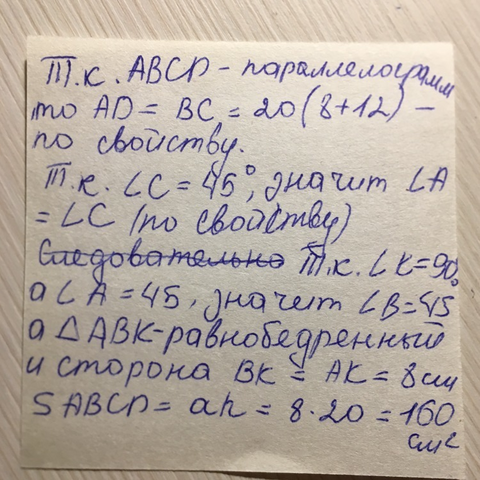 Т.к. ABCD - параллелограмм
то AD = BC = 20 (8+12) -
по свойству.
Т.к. ∠C = 45°, значит ∠A
= ∠C (по свойству)
Следовательно Т.к. ∠K=90°
а ∠A = 45, значит ∠B=45
а △ABK-равнобедренный
и сторона BK = AK = 8см
SABCD = ah = 8·20 = 160
см²